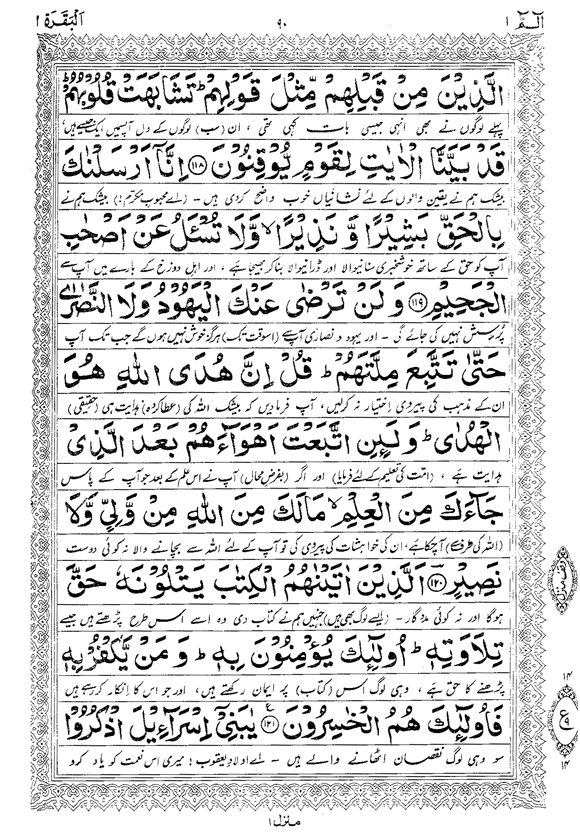 الٓمّٓ ١
٩٠
اَلْبَقَرَة ٢
الَّذِيْنَ مِنْ قَبْلِهِمْ مِّثْلَ قَوْلِهِمْ ؕ تَشَابَهَتْ قُلُوْبُهُمْ ؕ
پہلے لوگوں نے بھی انہی جیسی بات کہی تھی ، ان (سب) لوگوں کے دل آپس میں ایک جیسے ہیں
قَدْ بَيَّنَّا الْاٰيٰتِ لِقَوْمٍ يُّوْقِنُوْنَ ﴿۱۱۸﴾ اِنَّاۤ اَرْسَلْنٰكَ
بیشک ہم نے یقین والوں کے لئے نشانیاں خوب واضح کردی ہیں ۔ (اے محبوبِ مکرّم!) بیشک ہم نے
بِالْحَقِّ بَشِيْرًا وَّ نَذِيْرًا ۙ وَّلَا تُسْـَٔلُ عَنْ اَصْحٰبِ
آپ کو حق کے ساتھ خوشخبری سنانیوالا اور ڈرانیوالا بناکر بھیجا ہے ، اور اہلِ دوزخ کے بارے میں آپ سے
الْجَحِيْمِ ﴿۱۱۹﴾ وَ لَنْ تَرْضٰى عَنْكَ الْيَهُوْدُ وَلَا النَّصٰرٰى
پُرسش نہیں کی جائے گی ۔ اور یہود و نصاریٰ آپ سے (اسوقت تک) ہرگز خوش نہیں ہوں گے جب تک آپ
حَتّٰى تَتَّبِعَ مِلَّتَهُمْ ؕ قُلْ اِنَّ هُدَى اللّٰهِ هُوَ
ان کے مذہب کی پیروی اختیار نہ کرلیں، آپ فرمادیں کہ بیشک اللہ کی (عطا کردہ) ہدایت ہی (حقیقی)
الْهُدٰى ؕ وَلَىِٕنِ اتَّبَعْتَ اَهْوَآءَهُمْ بَعْدَ الَّذِىْ
ہدایت ہے ، (امّت کی تعلیم کے لئے فرمایا) اور اگر (بفرضِ محال) آپ نے اس علم کے بعد جو آپ کے پاس
جَآءَكَ مِنَ الْعِلْمِ ۙ مَا لَكَ مِنَ اللّٰهِ مِنْ وَّلِىٍّ وَّلَا
(اللہ کی طرف سے) آچکا ہے ، ان کی خواہشات کی پیروی کی تو آپ کے لئے اللہ سے بچانے والا نہ کوئی دوست
نَصِيْرٍ ﴿۱۲۰﴾ اَلَّذِيْنَ اٰتَيْنٰهُمُ الْكِتٰبَ يَتْلُوْنَهٗ حَقَّ
ہوگا اور نہ کوئی مددگار ۔ (ایسے لوگ بھی ہیں) جنہیں ہم نے کتاب دی وہ اسے اس طرح پڑھتے ہیں جیسے
تِلَاوَتِهٖ ؕ اُولٰٓىِٕكَ يُؤْمِنُوْنَ بِهٖ ؕ وَ مَنْ يَّكْفُرْ بِهٖ
پڑھنے کا حق ہے ، وہی لوگ اس (کتاب) پر ایمان رکھتے ہیں ، اور جو اس کا انکار کر رہے ہیں
فَاُولٰٓىِٕكَ هُمُ الْخٰسِرُوْنَ ﴿۱۲۱﴾ يٰبَنِىْۤ اِسْرَآءِيْلَ اذْكُرُوْا
سو وہی لوگ نقصان اٹھانے والے ہیں ۔ اے اولادِ یعقوب! میری اس نعمت کو یاد کرو
وقف منزل
١٤
ع ٩
١٤
منزل ١